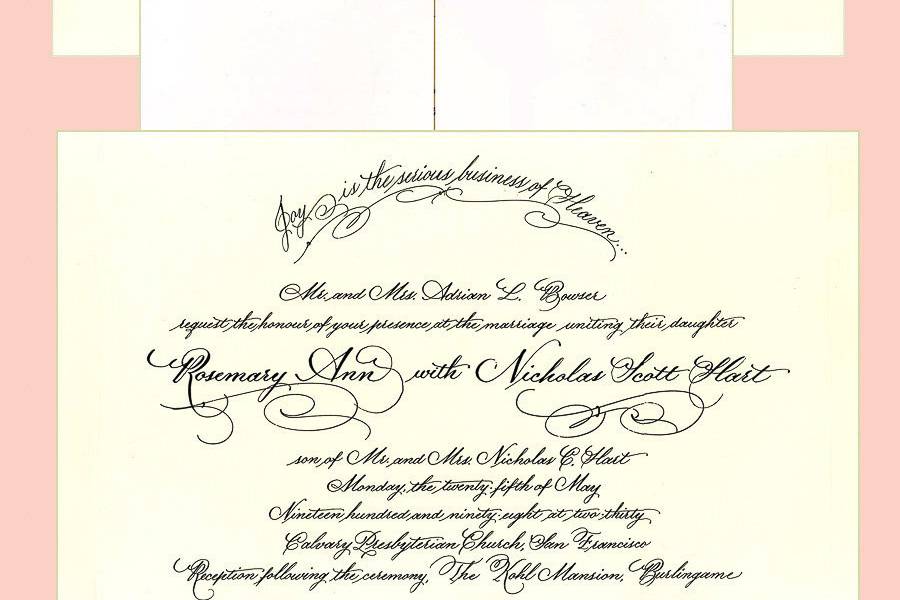 Joy is the serious business of Heaven...
Mr. and Mrs. Adrian L. Bowser
request the honour of your presence at the marriage uniting their daughter
Rosemary Ann with Nicholas Scott Hart
son of Mr. and Mrs. Nicholas C. Hart
Monday, the twenty-fifth of May
Nineteen hundred and ninety-eight at two-thirty
Calvary Presbyterian Church, San Francisco
Reception following the ceremony, The Kohl Mansion, Burlingame